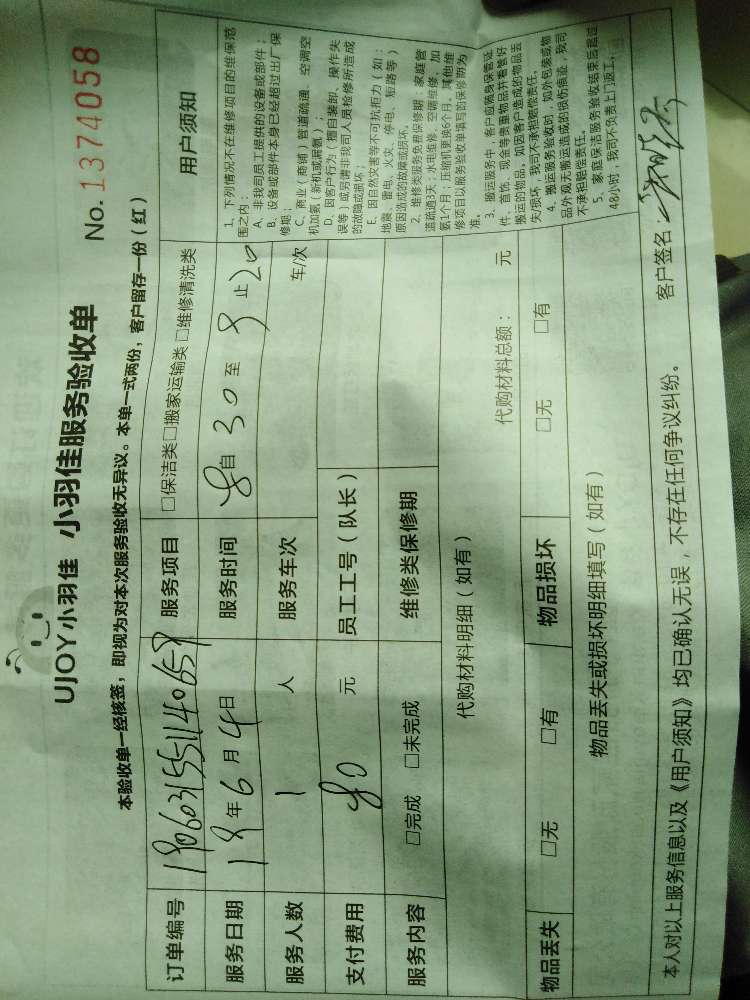 UJOY小羽佳 小羽佳服务验收单
No. 1374058
本验收单一经核签，即视为对本次服务验收无异议。本单一式两份，客户留存一份（红）
订单编号 服务项目 □保洁类□搬家运输类 □维修清洗类
服务日期 19年6月4日 服务时间 8自30至9止20
服务人数 1 人 服务车次 车/次
支付费用 80 元 员工工号（队长）
服务内容 □完成 □未完成 维修类保修期
代购材料明细（如有） 代购材料总额： 元
物品丢失 □无 □有 物品损坏 □无 □有
物品丢失或损坏明细填写（如有）
用户须知
1、下列情况不在维修项目的维保范
围之内：
A、非我司员工提供的设备或部件；
B、设备或部件本身已经超过出厂保
修期；
C、商业（商铺）管道疏通、空调空
机加氨（新机或漏氨）；
D、因客户行为（擅自装卸、操作失
误等）或另请非我司人员检修所造成
的故障或损坏；
E、因自然灾害等不可抗拒力（如：
地震、雷电、火灾、停电、短路等）
原因造成的故障或损坏。
2、维修类服务免费保修期：家庭管
道疏通3天；水电维修、空调维修、加
氨1个月；压缩机更换6个月。其他维
修项目以服务验收单填写的保修期为
准。
3、搬运服务中，客户应随身保管证
件、首饰、现金等贵重物品并看管好
搬运的物品，如因客户造成的物品丢
失/损坏，我司不承担赔偿责任。
4、搬运服务验收时，如外包装或物
品外观无搬运造成的损伤痕迹，我司
不承担赔偿责任。
5、家庭保洁服务验收结束后超过
48小时，我司不负责上门返工。
本人对以上服务信息以及《用户须知》均已确认无误，不存在任何争议纠纷。 客户签名